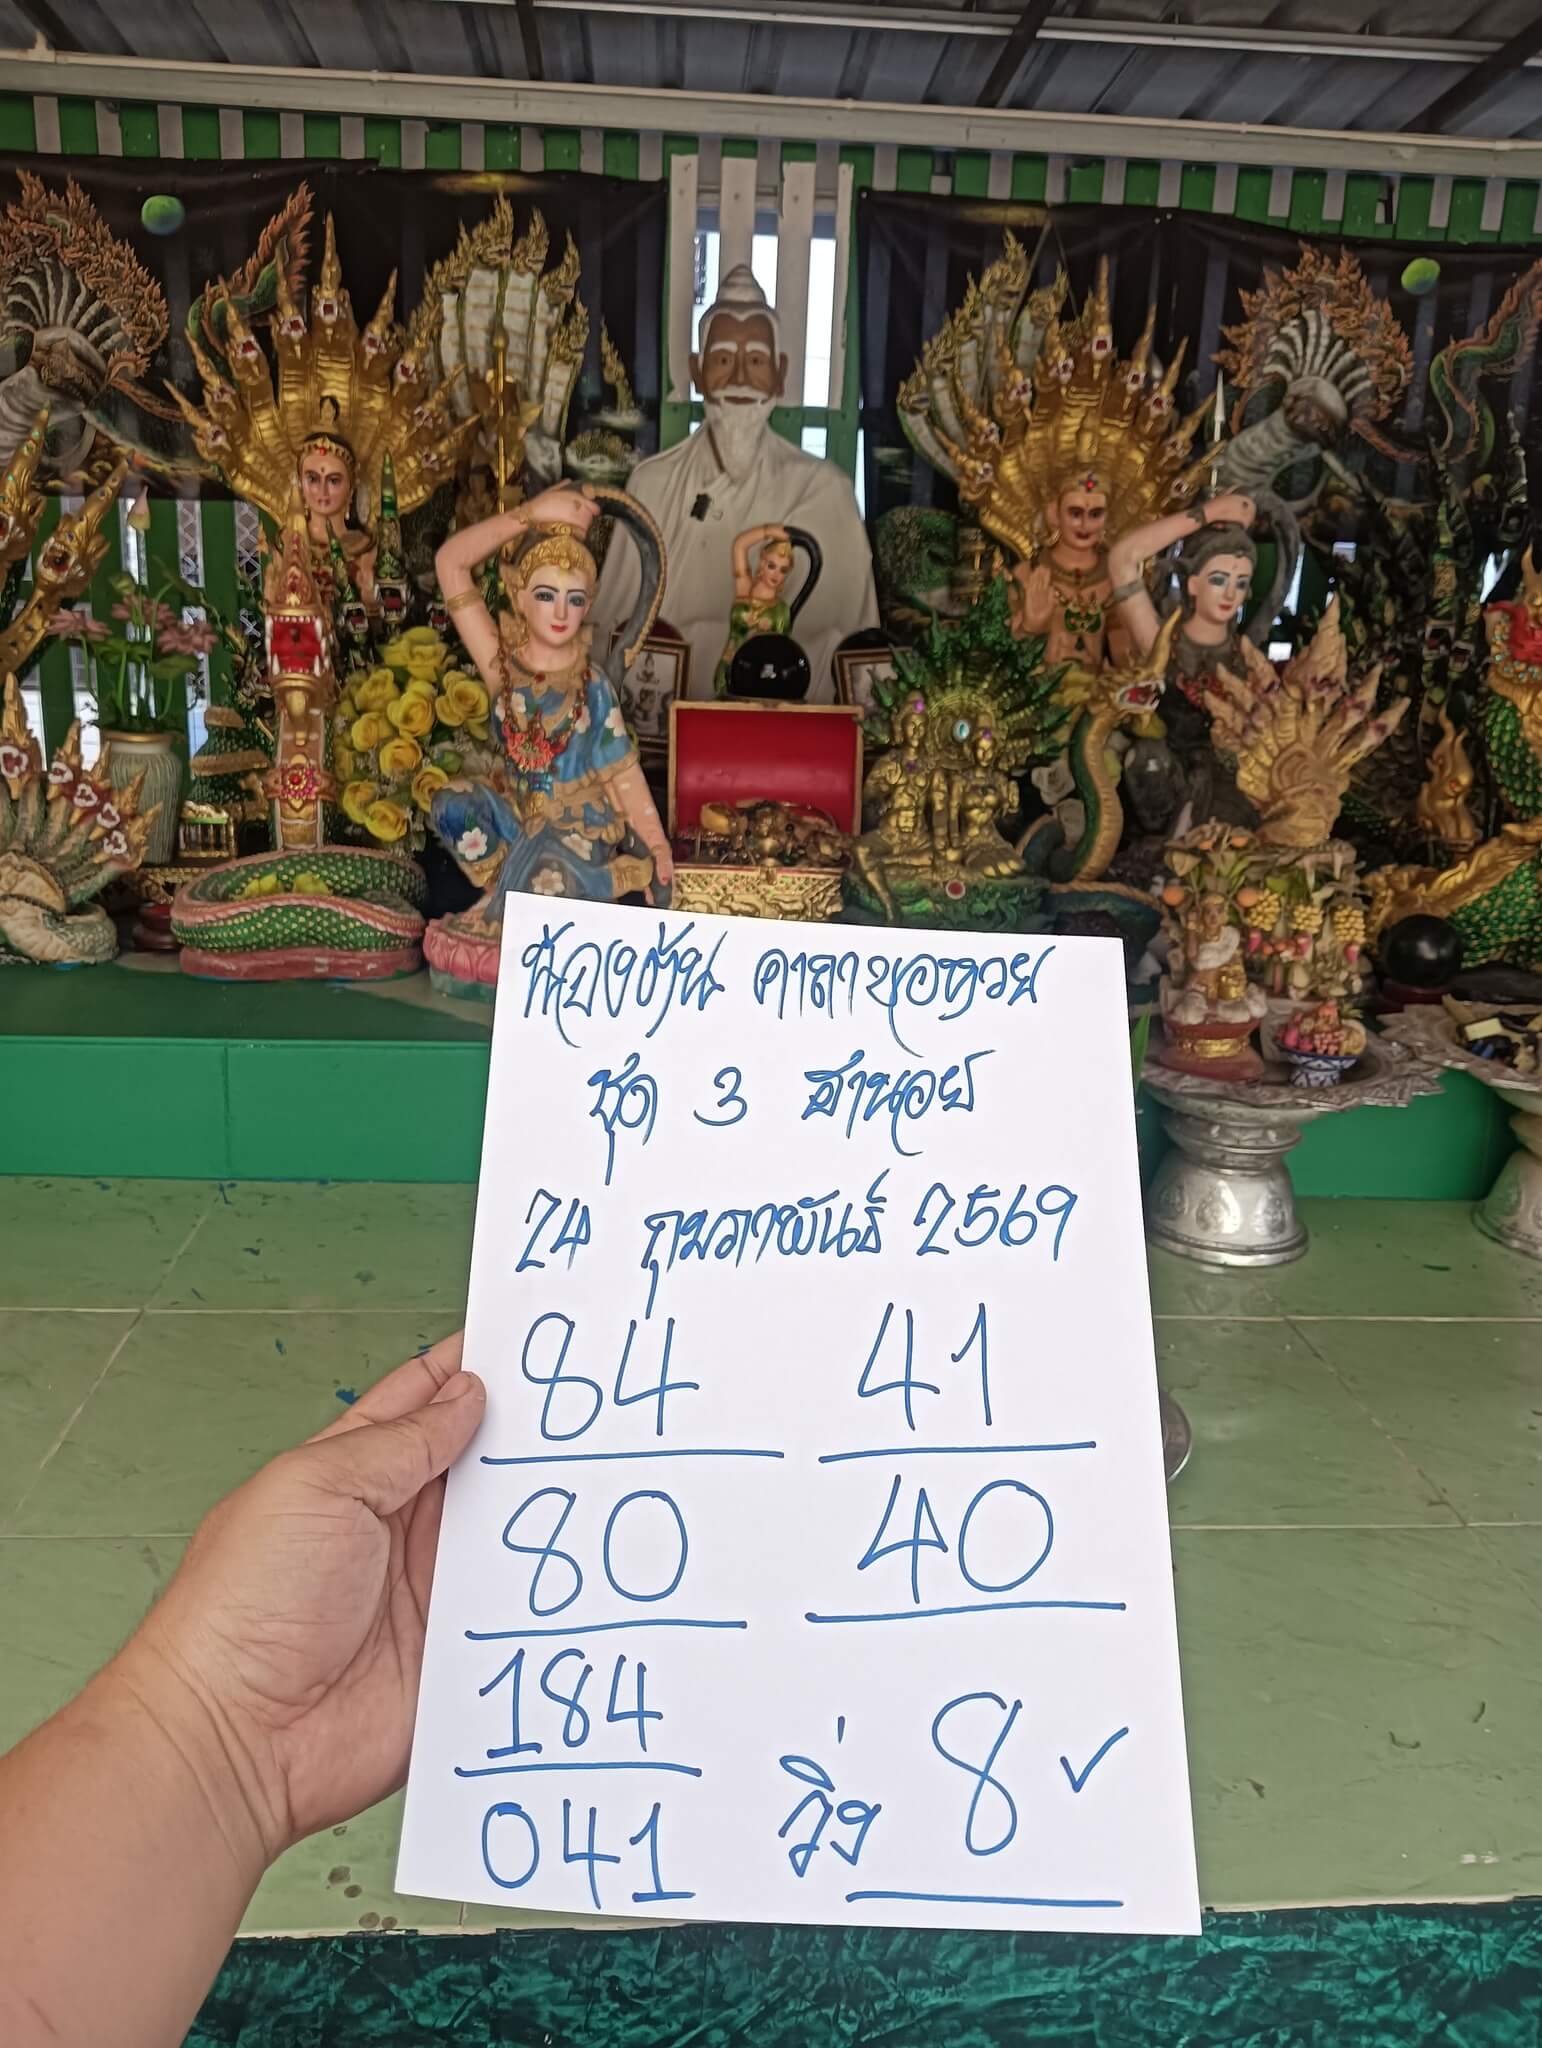 น้องต้น คาถาขอหวย
ชุด 3 ฮานอย
24 กุมภาพันธ์ 2569
84 41
80 40
184
วิ่ง 8 ✓
041